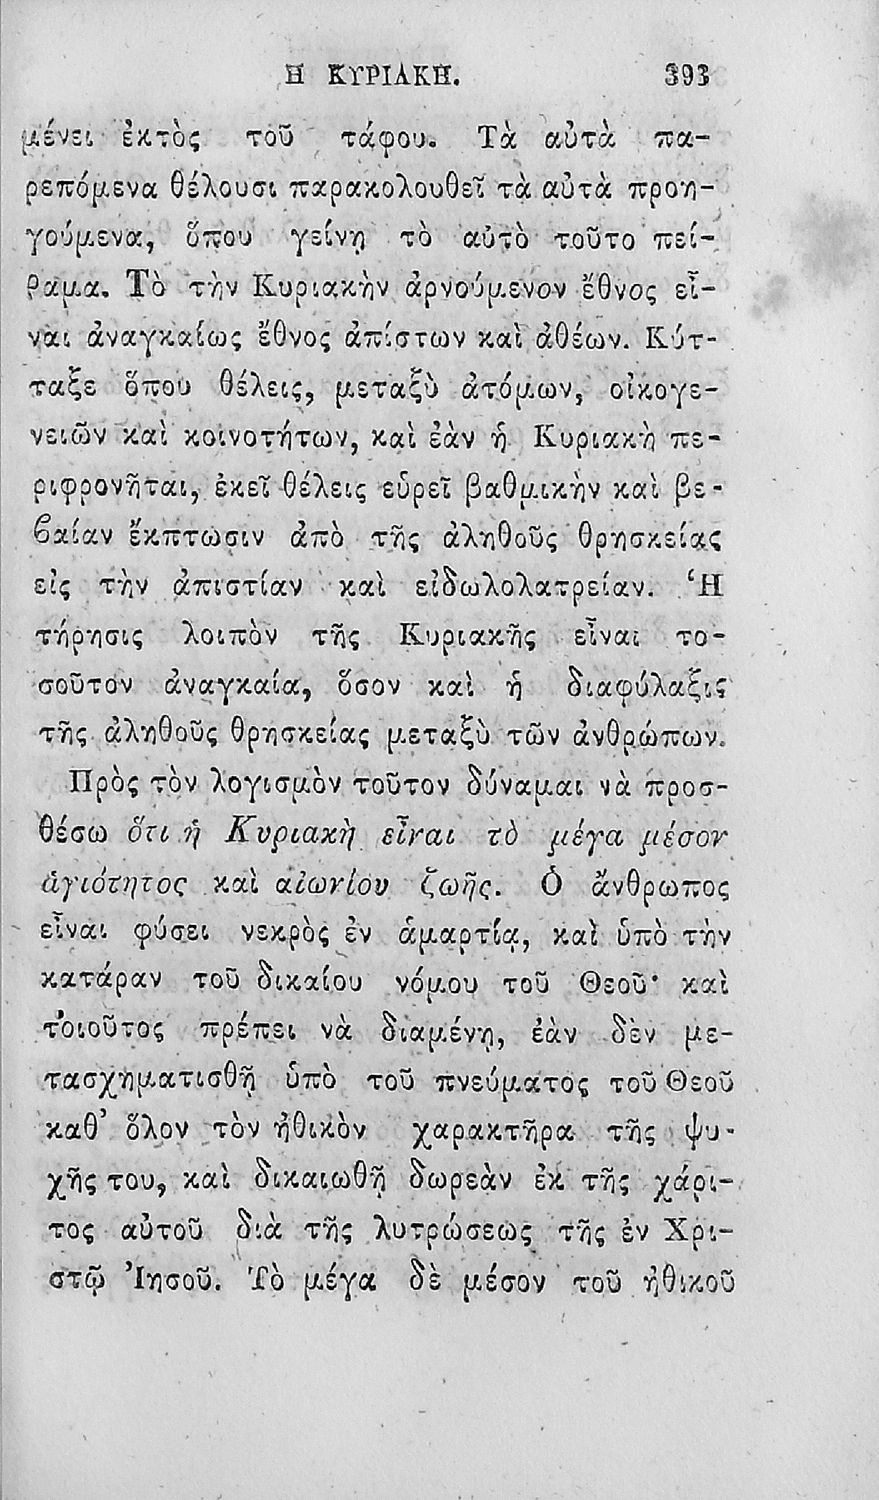 Η ΚΥΡΙΑΚΗ. 393
μένει ἐκτὸς τοῦ τάφου. Τὰ αὐτὰ πα-
ρεπόμενα θέλουσι παρακολουθεῖ τὰ αὐτὰ προη-
γούμενα, ὅπου γείνῃ τὸ αὐτὸ τοῦτο πεί-
ραμα. Τὸ τὴν Κυριακὴν ἀρνούμενον ἔθνος εἶ-
ναι ἀναγκαίως ἔθνος ἀπίστων καὶ ἀθέων. Κύτ-
ταξε ὅπου θέλεις, μεταξὺ ἀτόμων, οἰκογε-
νειῶν καὶ κοινοτήτων, καὶ ἐὰν ἡ Κυριακὴ πε-
ριφρονῆται, ἐκεῖ θέλεις εὑρεῖ βαθμικὴν καὶ βε-
ϐαίαν ἔκπτωσιν ἀπὸ τῆς ἀληθοῦς θρησκείας
εἰς τὴν ἀπιστίαν καὶ εἰδωλολατρείαν. Ἡ
τήρησις λοιπὸν τῆς Κυριακῆς εἶναι το-
σοῦτον ἀναγκαία, ὅσον καὶ ἡ διαφύλαξις
τῆς ἀληθοῦς θρησκείας μεταξὺ τῶν ἀνθρώπων.
Πρὸς τὸν λογισμὸν τοῦτον δύναμαι νὰ προσ-
θέσω ὅτι ἡ Κυριακὴ εἶναι τὸ μέγα μέσον
ἁγιότητος καὶ αἰωνίου ζωῆς. Ὁ ἄνθρωπος
εἶναι φύσει νεκρὸς ἐν ἁμαρτίᾳ, καὶ ὑπὸ τὴν
κατάραν τοῦ δικαίου νόμου τοῦ Θεοῦ· καὶ
τοιοῦτος πρέπει νὰ διαμένῃ, ἐὰν δὲν με-
τασχηματισθῇ ὑπὸ τοῦ πνεύματος τοῦ Θεοῦ
καθ’ ὅλον τὸν ἠθικὸν χαρακτῆρα τῆς ψυ-
χῆς του, καὶ δικαιωθῇ δωρεὰν ἐκ τῆς χάρι-
τος αὐτοῦ διὰ τῆς λυτρώσεως τῆς ἐν Χρι-
στῷ Ἰησοῦ. Τὸ μέγα δὲ μέσον τοῦ ἠθικοῦ